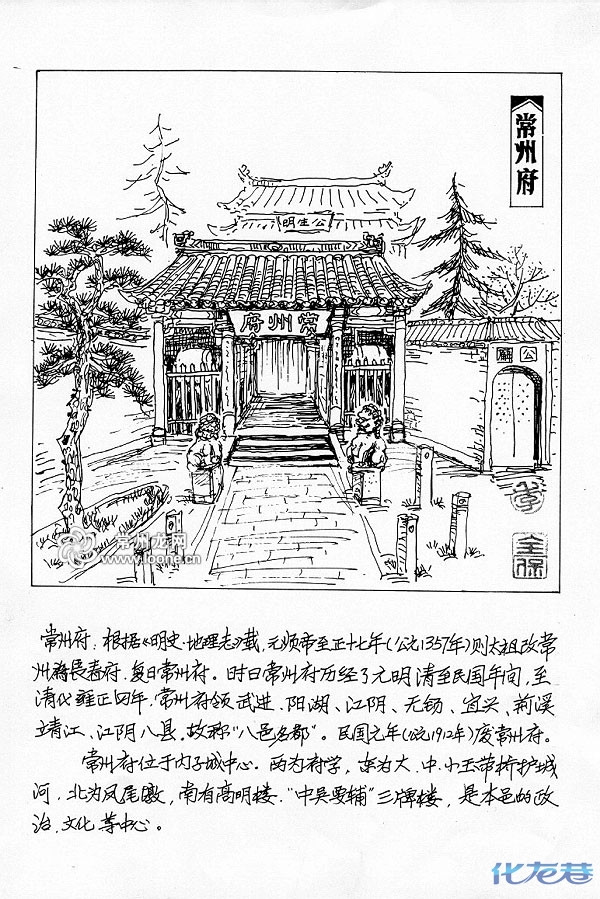 常州府
明生公
常州府
公廨
全保
常州龙网
www.loong.cn
常州府：根据《明史·地理志》载，元顺帝至正十七年（公元1357年）则太祖改常
州路长春府．复曰常州府。时曰常州府历经了元明清至民国年间，至
清代雍正四年，常州府领武进、阳湖、江阴、无锡、宜兴、荊溪
靖江、江阴八县，故称“八邑名郡”。民国元年（公元1912年）废常州府。
常州府位于内子城中心。西为府学，东为大、中、小玉带桥护城
河，北为凤尾墩，南有高明楼．“中吴要辅”三牌楼，是本邑的政
治、文化等中心。
化龙巷